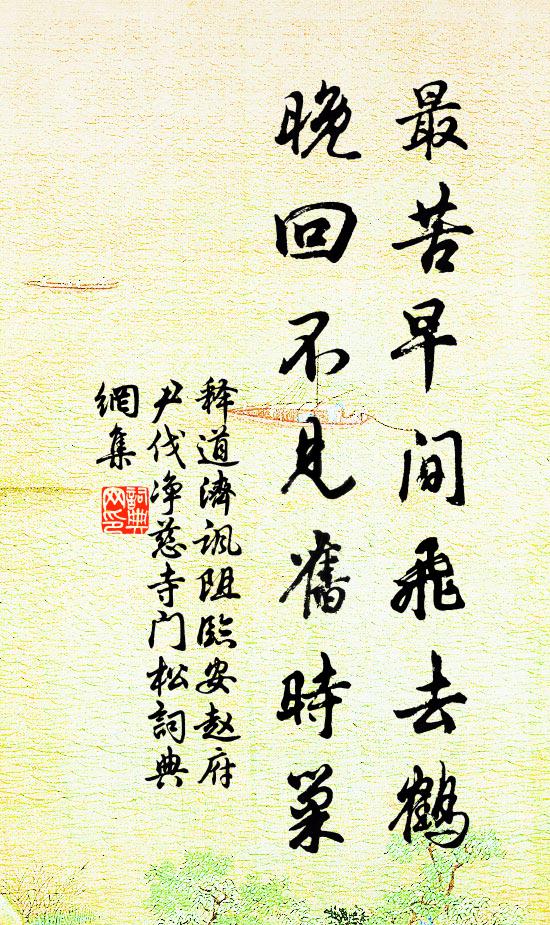 最苦早间飛去鶴
晚回不見舊時巢
释道濟讽阻臨安赵府
尹伐净慈寺门松詞典
網集
詞典
网印